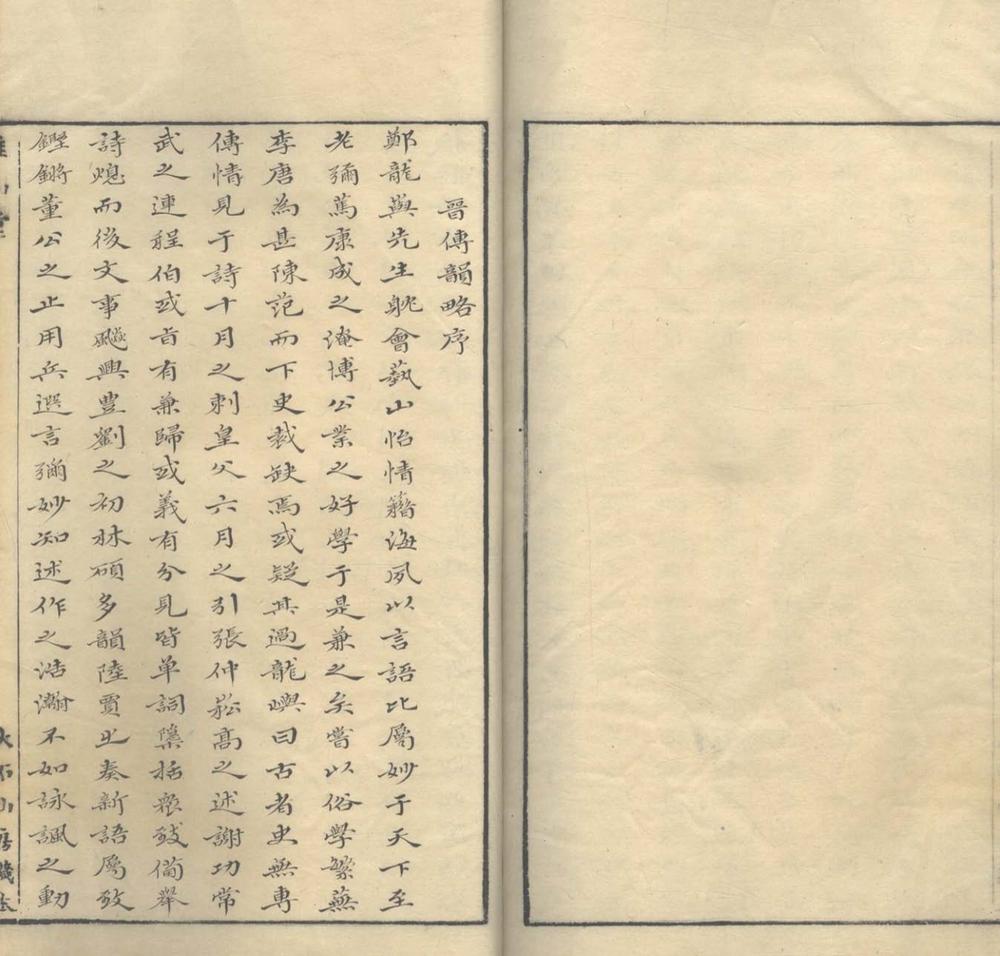 晉傳韻略序
鄭龍與先生躭會藝山怡情籍海夙以言語比屬妙于天下至
老彌篤康成之淹博公業之好學于是兼之矣嘗以俗學縈蕪
季唐為甚陳范而下史裁缺焉或疑其過龍嶼曰古者史無專
傳情見于詩十月之刺皇父六月之引張仲崧高之述謝功常
武之連程伯或旨有兼歸或義有分見皆单詞櫽括衆致僃舉
詩熄而後文事飈興豊劉之初栤碩多韻陸賈止奏新語屬攷
鏗鏘董公之止用兵選言彌妙知述作之浩瀚不如詠諷之動
大石山房